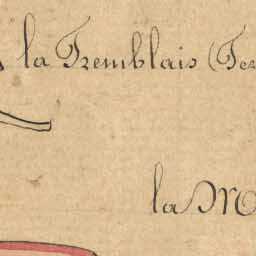 la Tremblais (Ter
la Mo